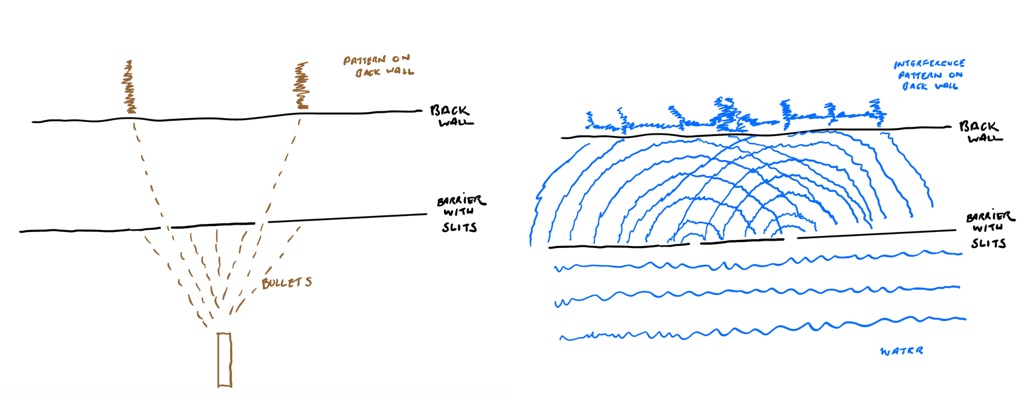 PATTERN ON
BACK WALL
BACK
WALL
BARRIER
WITH
SLITS
BULLETS
INTERFERENCE
PATTERN ON
BACK WALL
BACK
WALL
BARRIER
WITH
SLITS
WATER